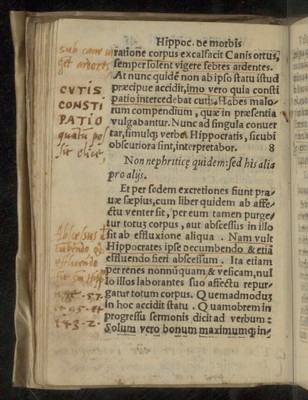 Hippoc. de morbis
sub cane
ratione corpus excalfacit Canis ortus,
semper solent vigere febres ardentes.
At nunc quidē non ab ipso statu istud
CVTIS
præcipue accidit, imo vero quia consti
CONSTI
patio intercedebat cutis. Habes malo-
PATIO
rum compendium, quæ in præsentia
vulgabantur. Nunc ad singula conuer
tar, simulq; verba Hippocratis, sicubi
obscuriora sint, interpretabor. 8
Non nephriticę quidem: sed his alia
pro alijs.
Et per sedem excretiones fiunt pra-
uæ sæpius, cum liber quidem ab affe-
ctu venter sit, per eum tamen purge-
tur totus corpus, aut abscessus in illo
sit ab effluxione aliqua. Nam vult
Hippocrates ipse decumbendo & etiā
effluendo fieri abscessum. Ita etiam
per renes nonnūquam & vesicam, nul
lo illos laborantes suo affectu repur-
gatur totum corpus. Quemadmodū
in hoc accidit statu. Quamobrem in
progressu sermonis dicit ad verbum:
Solum vero bonum maximumq; in-